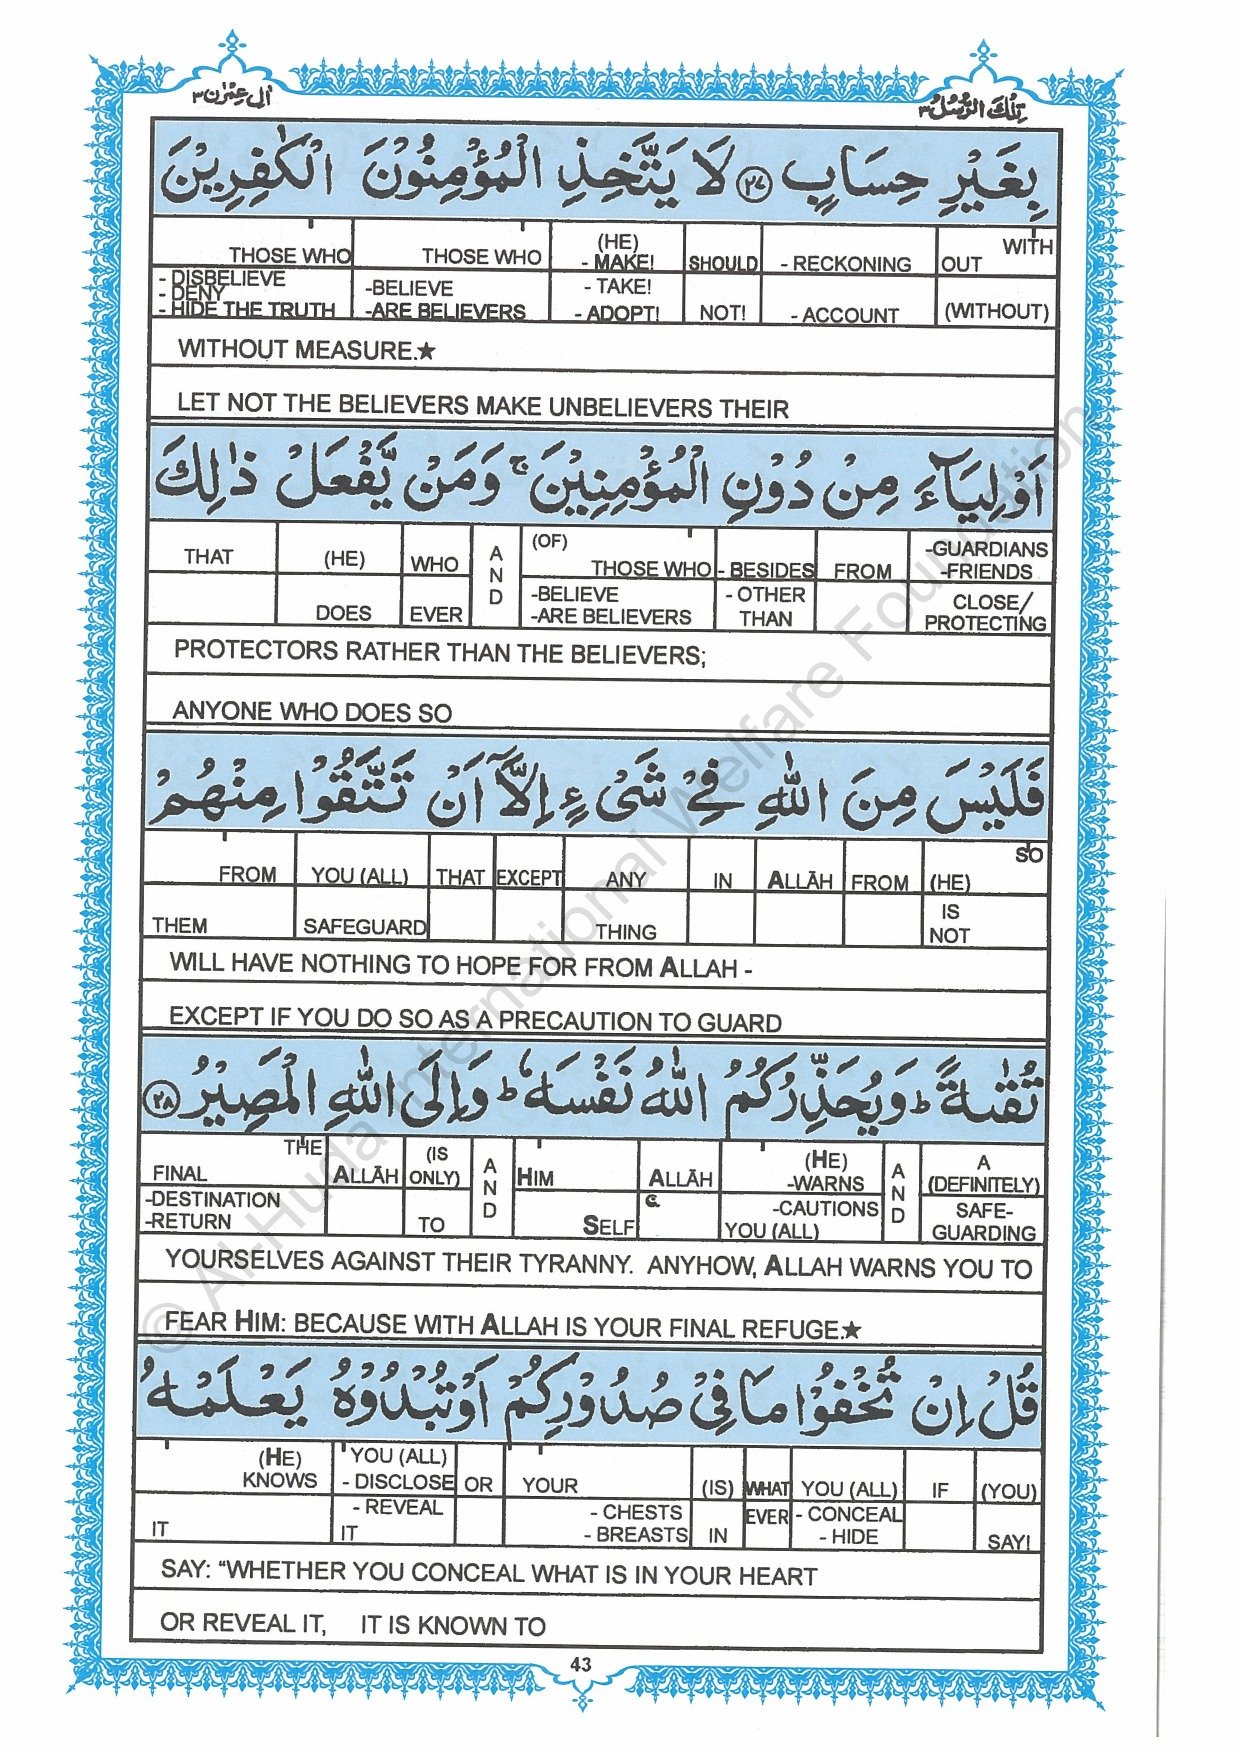 اٰلِ عِمْرٰن ٣
تِلْكَ الرُّسُلُ ٣
بِغَيْرِ حِسَابٍ ٢٧ لَا يَتَّخِذِ الْمُؤْمِنُوْنَ الْكٰفِرِيْنَ
THOSE WHO THOSE WHO (HE) - MAKE! SHOULD - RECKONING OUT WITH
- DISBELIEVE - DENY - HIDE THE TRUTH -BELIEVE -ARE BELIEVERS - TAKE! - ADOPT! NOT! - ACCOUNT (WITHOUT)
WITHOUT MEASURE.★
LET NOT THE BELIEVERS MAKE UNBELIEVERS THEIR
اَوْلِيَآءَ مِنْ دُوْنِ الْمُؤْمِنِيْنَ ۚ وَمَنْ يَّفْعَلْ ذٰلِكَ
THAT (HE) WHO AND (OF) THOSE WHO - BESIDES FROM -GUARDIANS -FRIENDS
DOES EVER -BELIEVE -ARE BELIEVERS - OTHER THAN CLOSE/ PROTECTING
PROTECTORS RATHER THAN THE BELIEVERS;
ANYONE WHO DOES SO
فَلَيْسَ مِنَ اللّٰهِ فِيْ شَيْءٍ اِلَّآ اَنْ تَتَّقُوْا مِنْهُمْ
FROM YOU (ALL) THAT EXCEPT ANY IN ALLĀH FROM (HE) SO
THEM SAFEGUARD THING IS NOT
WILL HAVE NOTHING TO HOPE FOR FROM ALLAH -
EXCEPT IF YOU DO SO AS A PRECAUTION TO GUARD
تُقٰىةً ؕ وَيُحَذِّرُكُمُ اللّٰهُ نَفْسَهٗ ؕ وَاِلَى اللّٰهِ الْمَصِيْرُ ٢٨
FINAL THE ALLĀH (IS ONLY) AND HIM ALLĀH (HE) -WARNS AND A (DEFINITELY)
-DESTINATION -RETURN TO SELF -CAUTIONS YOU (ALL) SAFE- GUARDING
YOURSELVES AGAINST THEIR TYRANNY. ANYHOW, ALLAH WARNS YOU TO
FEAR HIM: BECAUSE WITH ALLAH IS YOUR FINAL REFUGE.★
قُلْ اِنْ تُخْفُوْا مَا فِيْ صُدُوْرِكُمْ اَوْ تُبْدُوْهُ يَعْلَمْهُ
(HE) KNOWS YOU (ALL) - DISCLOSE OR YOUR (IS) WHAT YOU (ALL) IF (YOU)
IT - REVEAL IT - CHESTS - BREASTS IN EVER - CONCEAL - HIDE SAY!
SAY: “WHETHER YOU CONCEAL WHAT IS IN YOUR HEART
OR REVEAL IT, IT IS KNOWN TO
43
© Al-Huda International Welfare Foundation